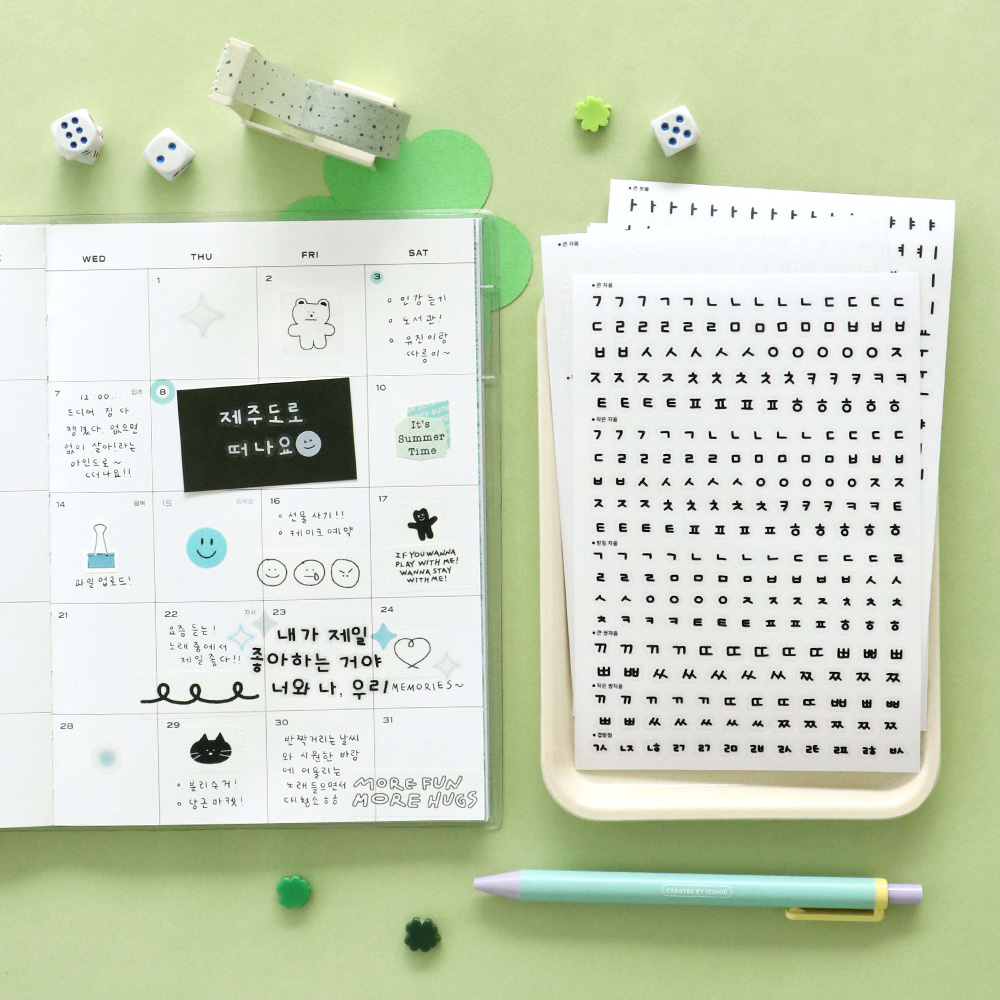 WED THU FRI SAT
1
2
3
인강듣기
도서관!
유진이랑
따릉이~
7
입추
12:00...
드디어 짐 다
챙겼다. 없으면
없이 살아!라는
마인드로~
떠나요!!
8
제주도로
떠나요
10
It's
Summer
Time
14
말복
파일 업로드!
15
광복절
16
선물 사기!!
케이크 예약
17
IF YOU WANNA
PLAY WITH ME!
WANNA STAY
WITH ME!
21
22
처서
요즘 듣는!
노래 중에서
제일 좋다!!
23
내가 제일
좋아하는 거야
너와 나, 우리
24
MEMORIES~
28
29
분리수거!
당근마켓!
30
반짝거리는 날씨
와 시원한 바람
에 어울리는
노래 들으면서
대청소 ㅎㅎ
31
MORE FUN
MORE HUGS
큰 모음
ㅏ ㅏ ㅏ ㅏ ㅏ ㅏ ㅏ ㅏ
큰 자음
큰 자음
ㄱ ㄱ ㄱ ㄱ ㄱ ㄴ ㄴ ㄴ ㄴ ㄴ ㄷ ㄷ ㄷ ㄷ
ㄷ ㄹ ㄹ ㄹ ㄹ ㄹ ㅁ ㅁ ㅁ ㅁ ㅁ ㅂ ㅂ ㅂ
ㅂ ㅂ ㅅ ㅅ ㅅ ㅅ ㅅ ㅇ ㅇ ㅇ ㅇ ㅇ ㅇ ㅈ
ㅈ ㅈ ㅈ ㅈ ㅊ ㅊ ㅊ ㅊ ㅊ ㅋ ㅋ ㅋ ㅋ
ㅌ ㅌ ㅌ ㅌ ㅍ ㅍ ㅍ ㅍ ㅎ ㅎ ㅎ ㅎ ㅎ
작은 자음
ㄱ ㄱ ㄱ ㄱ ㄱ ㄴ ㄴ ㄴ ㄴ ㄴ ㄷ ㄷ ㄷ ㄷ
ㄷ ㄹ ㄹ ㄹ ㄹ ㄹ ㅁ ㅁ ㅁ ㅁ ㅁ ㅂ ㅂ ㅂ
ㅂ ㅂ ㅅ ㅅ ㅅ ㅅ ㅅ ㅇ ㅇ ㅇ ㅇ ㅇ ㅈ ㅈ
ㅈ ㅈ ㅈ ㅊ ㅊ ㅊ ㅊ ㅊ ㅋ ㅋ ㅋ ㅋ ㅌ
ㅌ ㅌ ㅌ ㅌ ㅍ ㅍ ㅍ ㅍ ㅎ ㅎ ㅎ ㅎ ㅎ
받침 자음
ㄱ ㄱ ㄱ ㄱ ㄴ ㄴ ㄴ ㄴ ㄷ ㄷ ㄷ ㄷ ㄹ
ㄹ ㄹ ㄹ ㅁ ㅁ ㅁ ㅁ ㅂ ㅂ ㅂ ㅂ ㅅ ㅅ
ㅅ ㅅ ㅇ ㅇ ㅇ ㅇ ㅈ ㅈ ㅈ ㅈ ㅊ ㅊ ㅊ
ㅊ ㅋ ㅋ ㅋ ㅌ ㅌ ㅌ ㅍ ㅍ ㅍ ㅎ ㅎ ㅎ
큰 쌍자음
ㄲ ㄲ ㄲ ㄲ ㄸ ㄸ ㄸ ㄸ ㄸ ㅃ ㅃ ㅃ
ㅃ ㅃ ㅆ ㅆ ㅆ ㅆ ㅆ ㅉ ㅉ ㅉ ㅉ
작은 쌍자음
ㄲ ㄲ ㄲ ㄲ ㄲ ㄸ ㄸ ㄸ ㄸ ㅃ ㅃ ㅃ
ㅃ ㅃ ㅆ ㅆ ㅆ ㅆ ㅆ ㅉ ㅉ ㅉ ㅉ
겹받침
ㄳ ㄵ ㄶ ㄺ ㄺ ㄻ ㄼ ㄽ ㄾ ㄿ ㅀ ㅄ
CREATED BY ICONIC